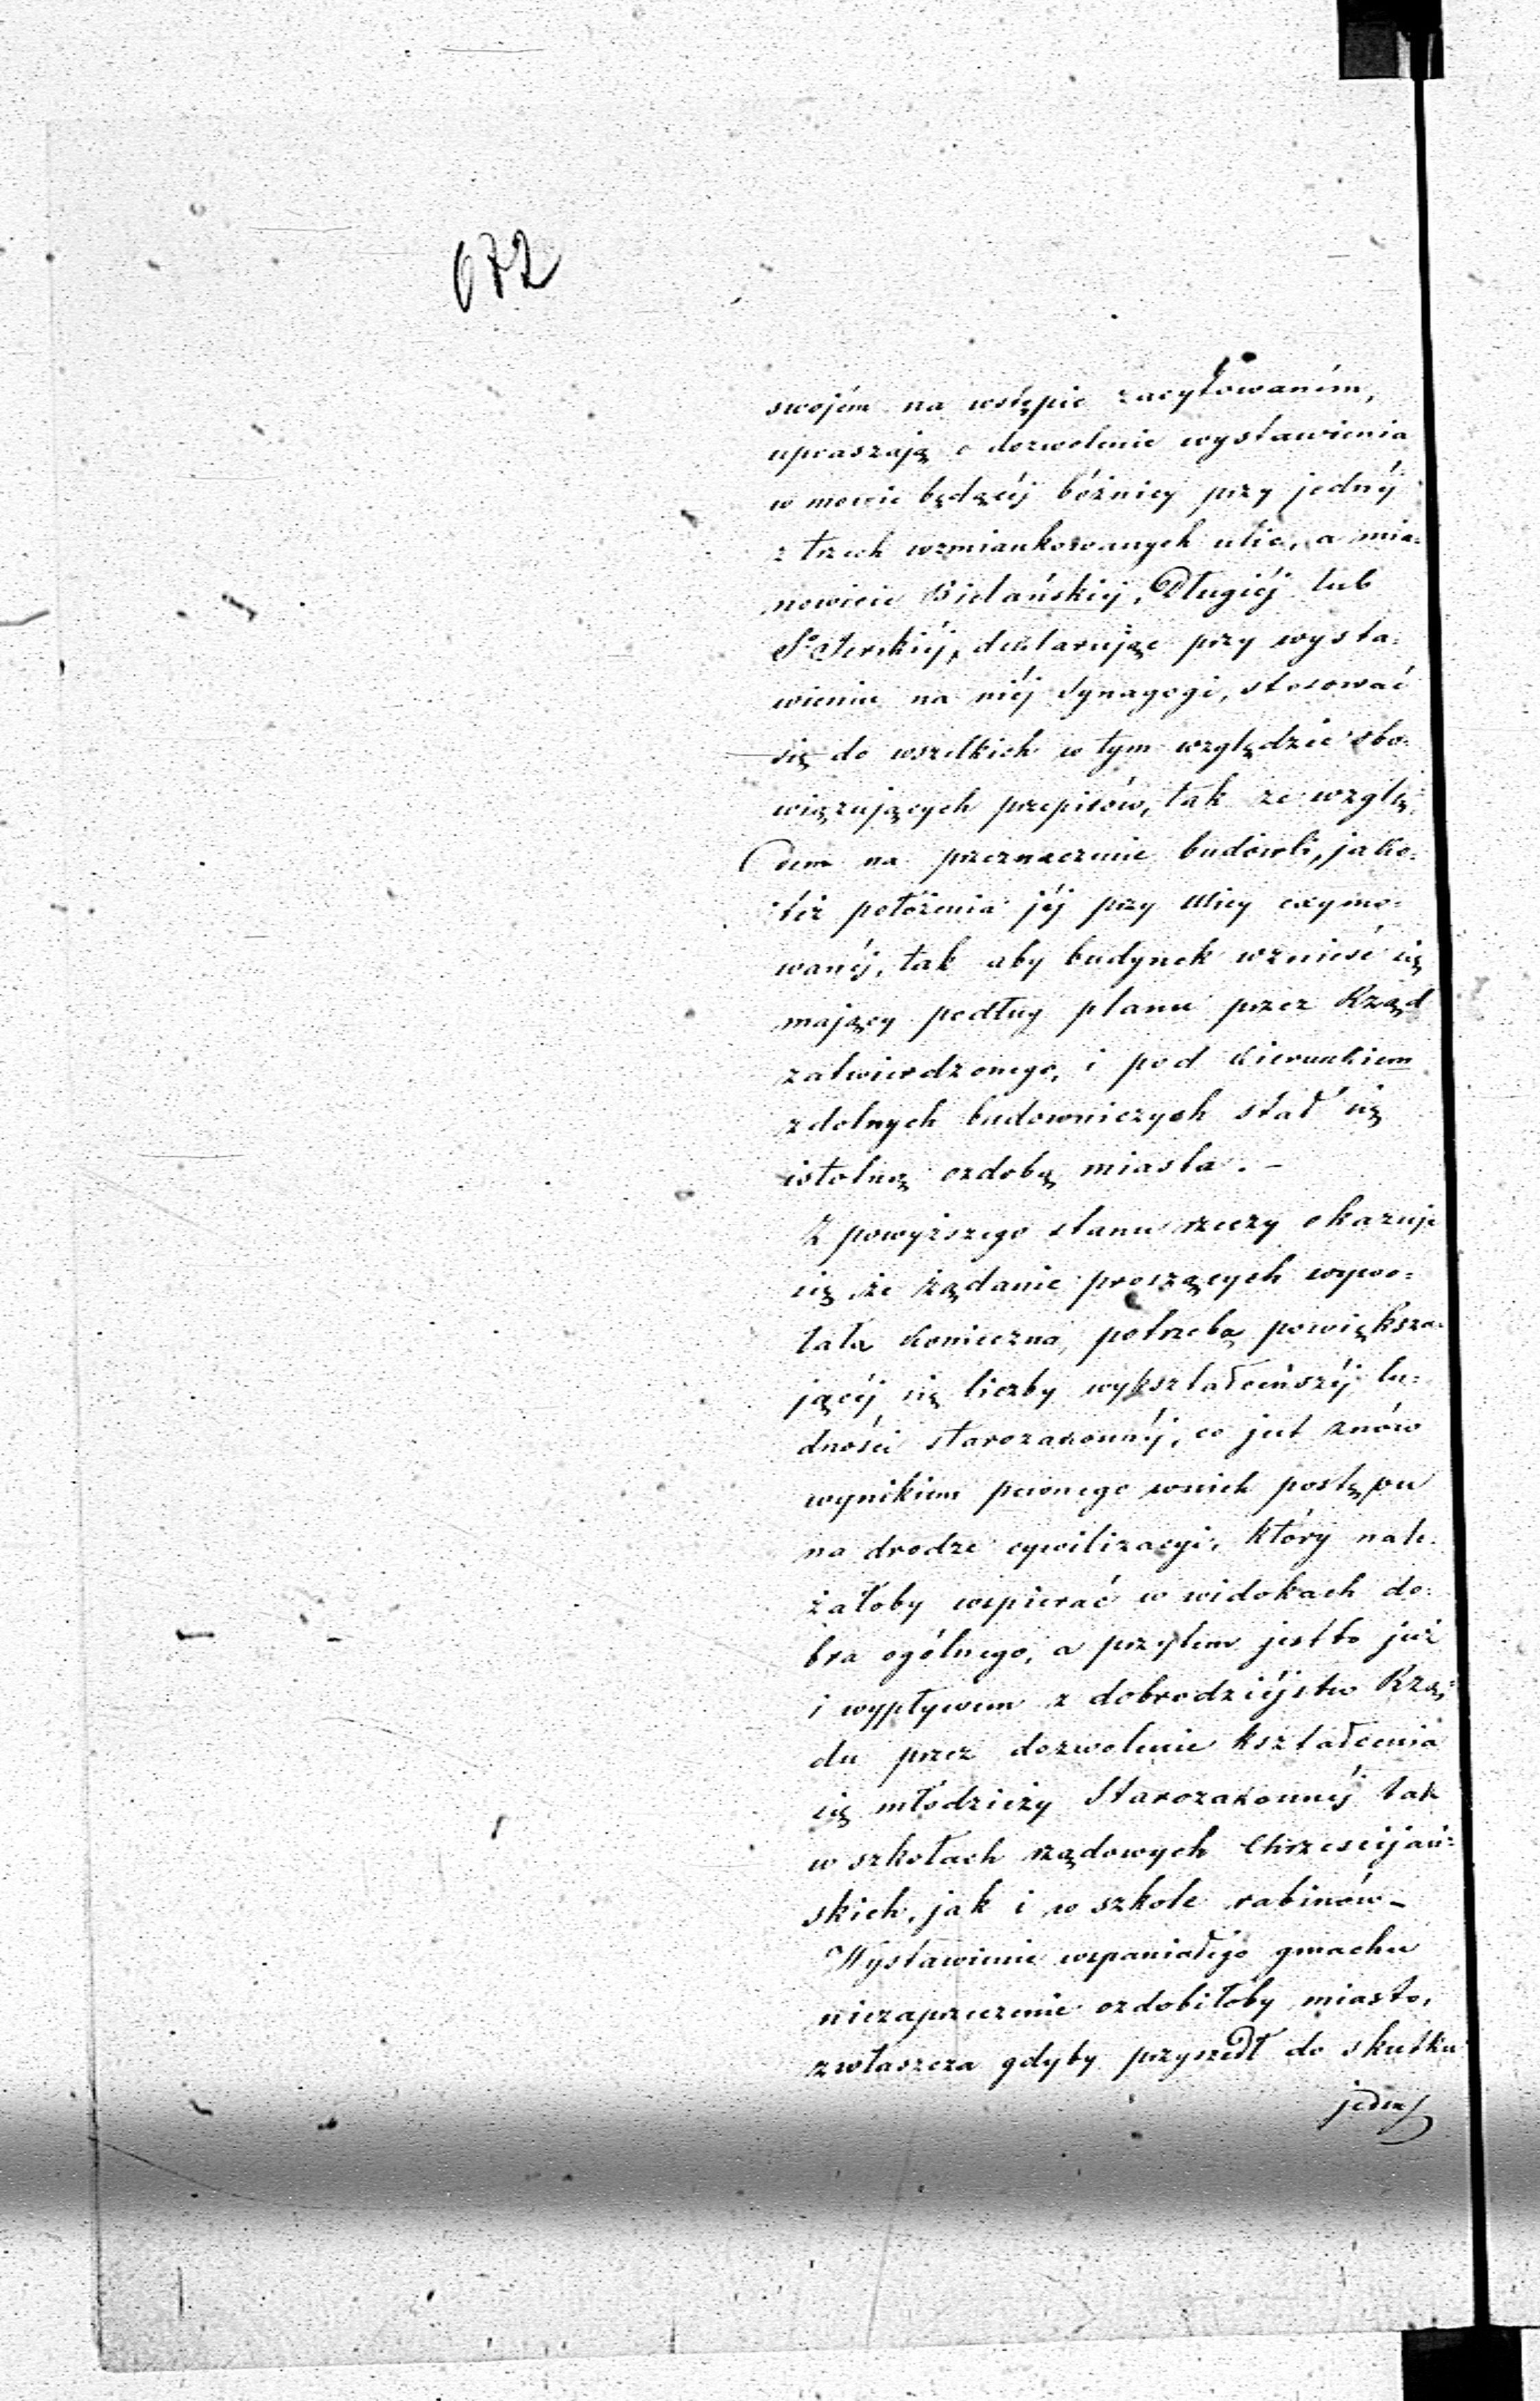 672
swojém na wstępie zacytowaném,
upraszają o dozwolenie wystawienia
w mowie będącéj bóżnicy przy jednéj
z trzech wzmiankowanych ulic, a mia=
nowicie Bielańskiéj, Długiéj lub
Sto Jerskiéj, deklarując przy wysta=
wieniu na niéj Synagogi, stosować
się do wszelkich w tym względzie obo=
wiązujących przepisów, tak ze wzglę=
dem na przeznaczenie budowli, jako=
też położenia jéj przy ulicy exymo=
wanéj, tak aby budynek wznieść się
mający podług planu przez Rząd
zatwierdzonego, i pod kierunkiem
zdolnych budowniczych stał się
istotną ozdobą miasta. –
Z powyższego stanu rzeczy okazuje
się, że żądanie proszących wywo=
łała konieczna potrzeba powiększa=
jącéj się liczby wykształceńszéj lu=
dności starozakonnéj, co jest znów
wynikiem pewnego wnich postępu
na drodze cywilizacyi, który nale=
żałoby wspierać w widokach do=
bra ogólnego, a przytem jestto już
i wypływem z dobrodziéjstw Rzą=
du przez dozwolenie kształcenia
się młodzieży Starozakonnéj tak
w szkołach rządowych Chrześcijań=
skich, jak i w szkole rabinów –
Wystawienie wspaniałego gmachu
niezaprzeczenie ozdobiłoby miasto,
zwłaszcza gdyby przyszedł do skutku
jeden